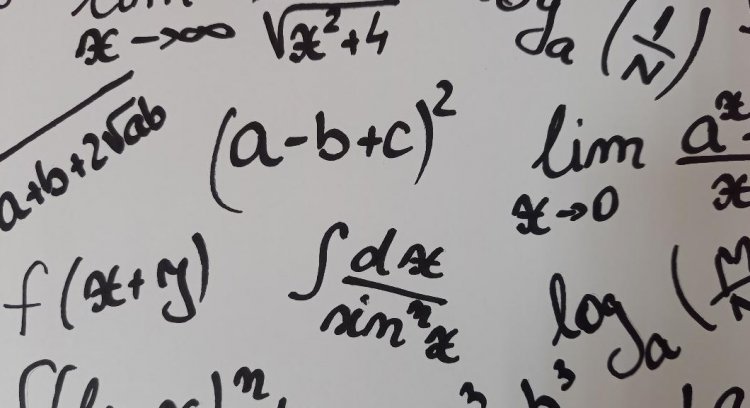 lim x→∞ √x²+4
logₐ (1/N)
√a+b+2√ab
(a-b+c)²
lim x→0 aˣ- / x
f(x+y)
∫ dx / sinⁿx
logₐ (M/N
)ⁿ
³ b³